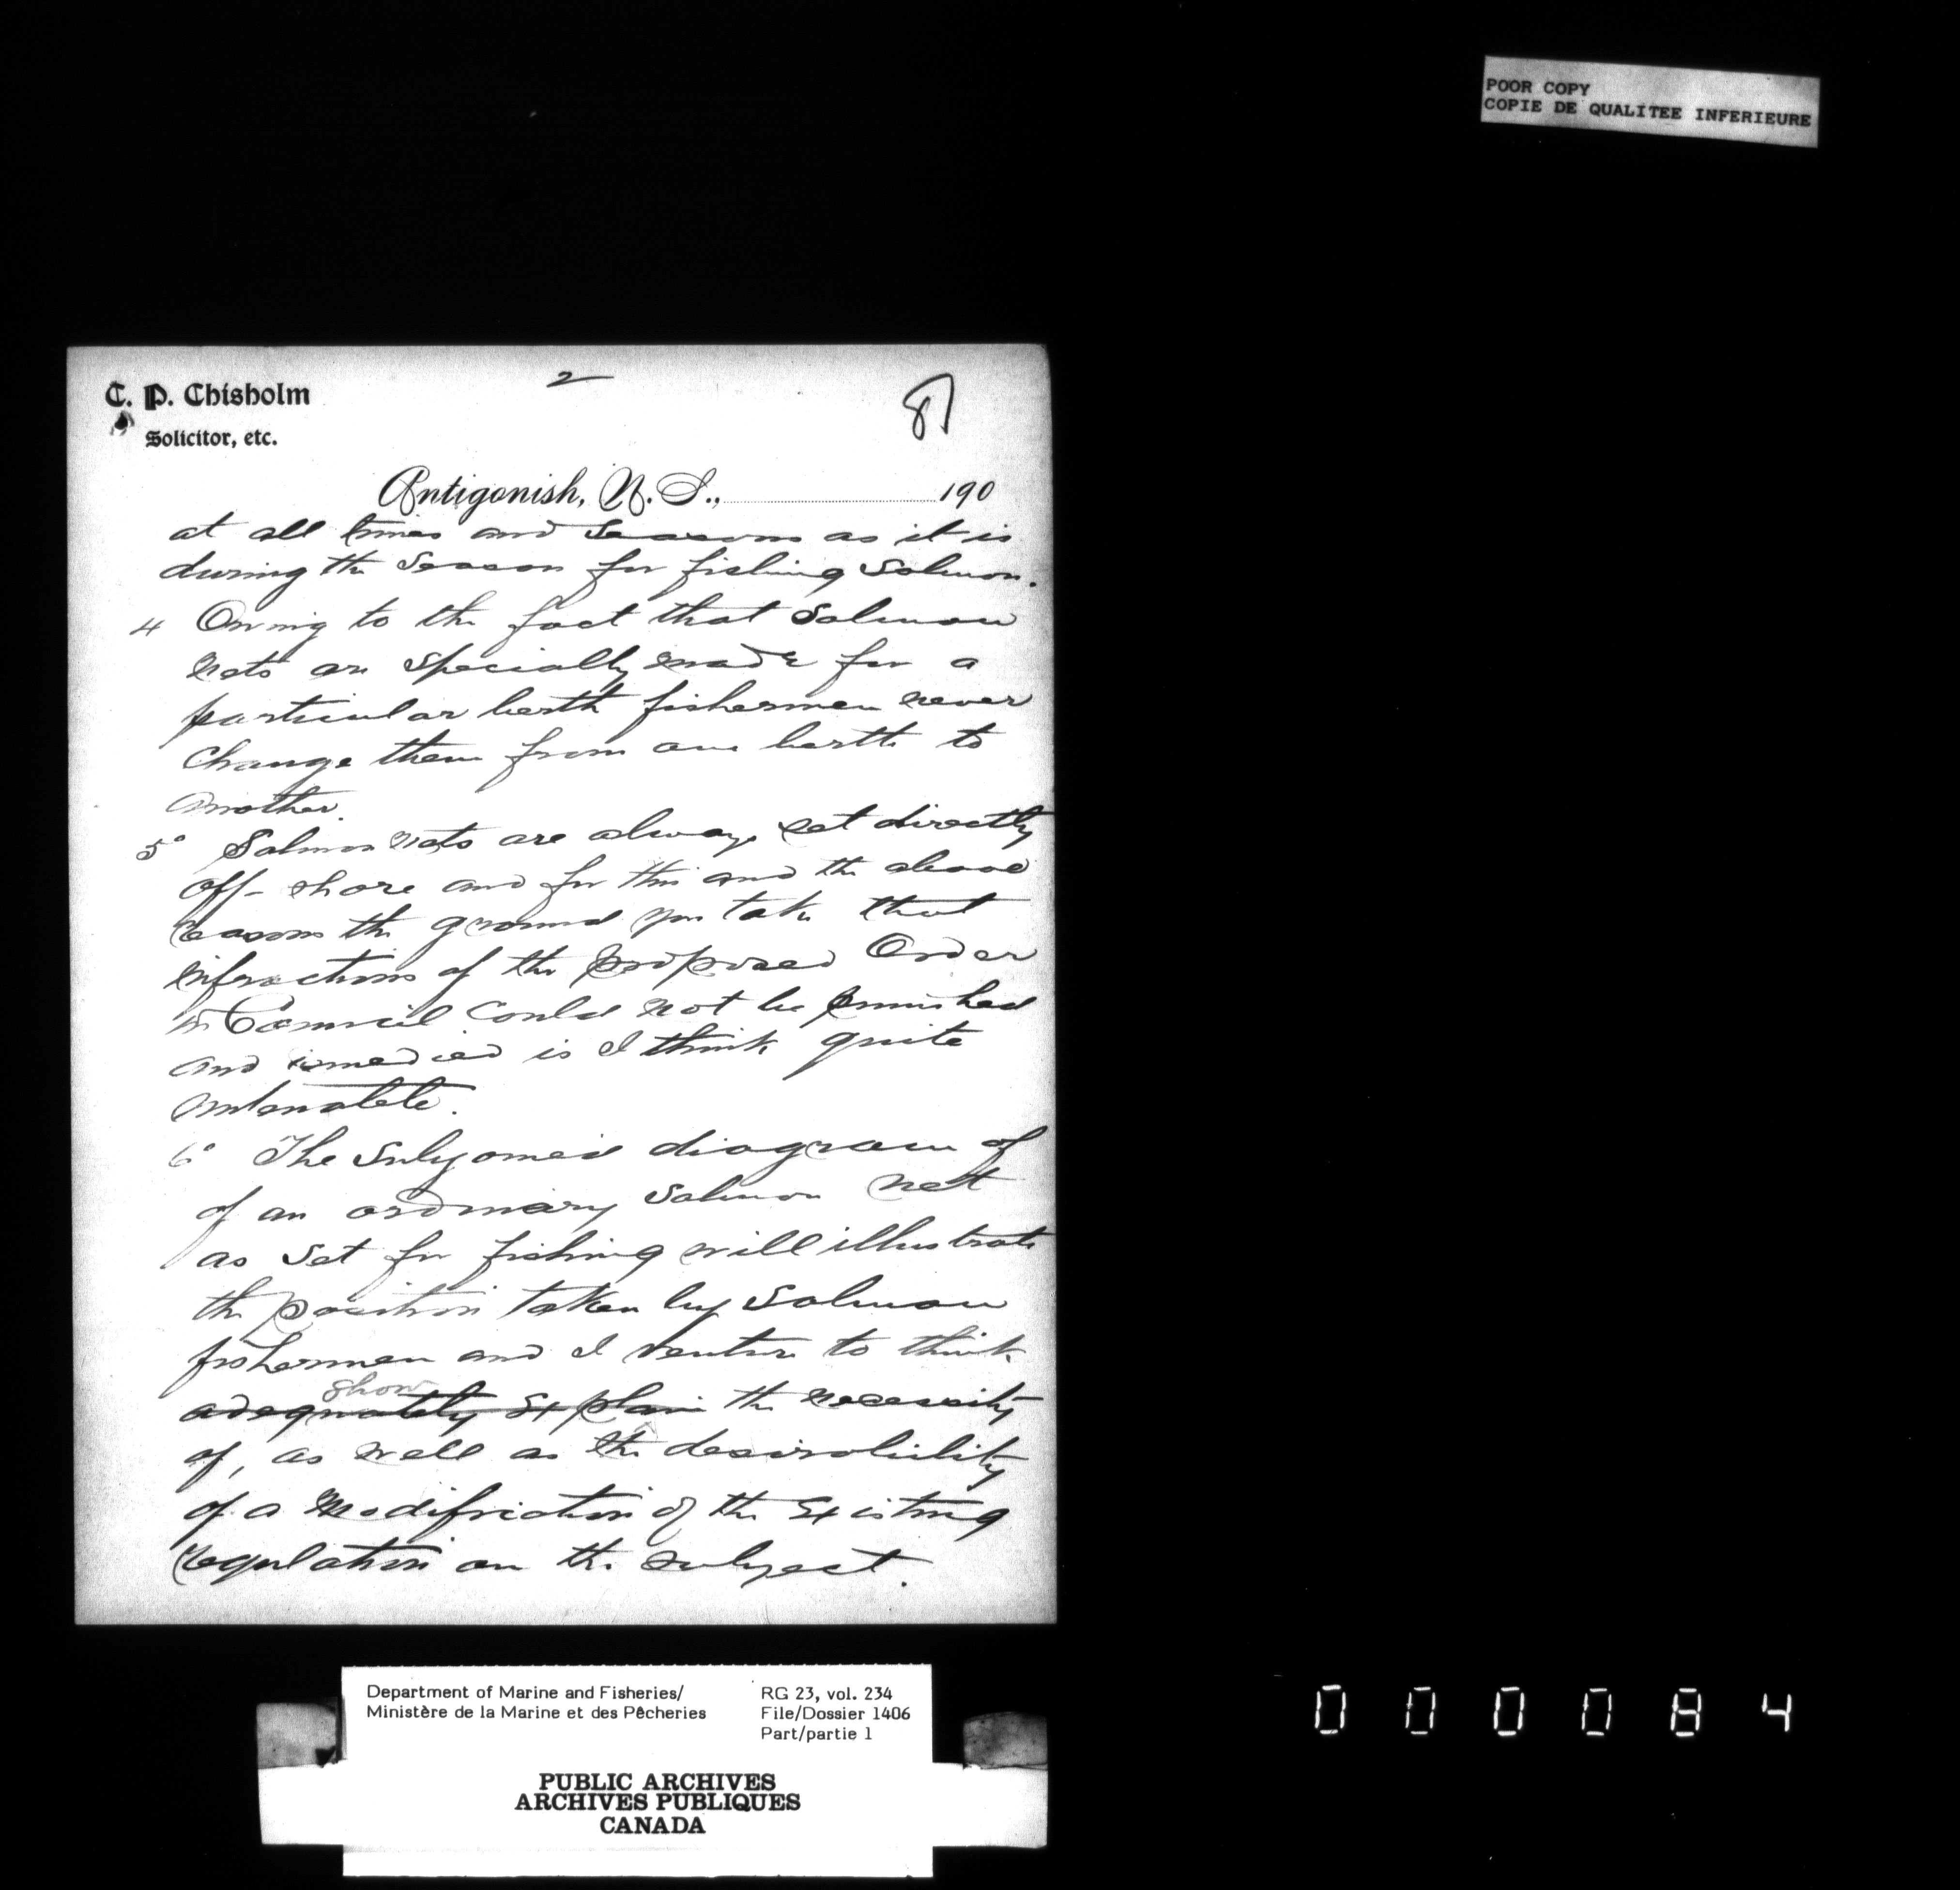 POOR COPY
COPIE DE QUALITEE INFERIEURE
2
87
C. P. Chisholm
Solicitor, etc.
Antigonish, N. S., 190
at all times and seasons as it is
during the season for fishing Salmon.
4 Owing to the fact that Salmon
nets are specially made for a
particular berth fishermen never
change them from one berth to
another.
5° Salmon nets are always set directly
off-shore and for this and the above
reasons the ground you take that
infractions of the proposed Order
in Council could not be punished
and is I think quite
6° The subjoined diagram of
of an ordinary salmon net
as set for fishing will illustrate
the position taken by Salmon
fishermen and I venture to think
show
adequately explain the necessity
of, as well as the desirability
of a modification of the existing
regulation on the subject.
Department of Marine and Fisheries/
Ministère de la Marine et des Pêcheries
RG 23, vol. 234
File/Dossier 1406
Part/partie 1
PUBLIC ARCHIVES
ARCHIVES PUBLIQUES
CANADA
000084